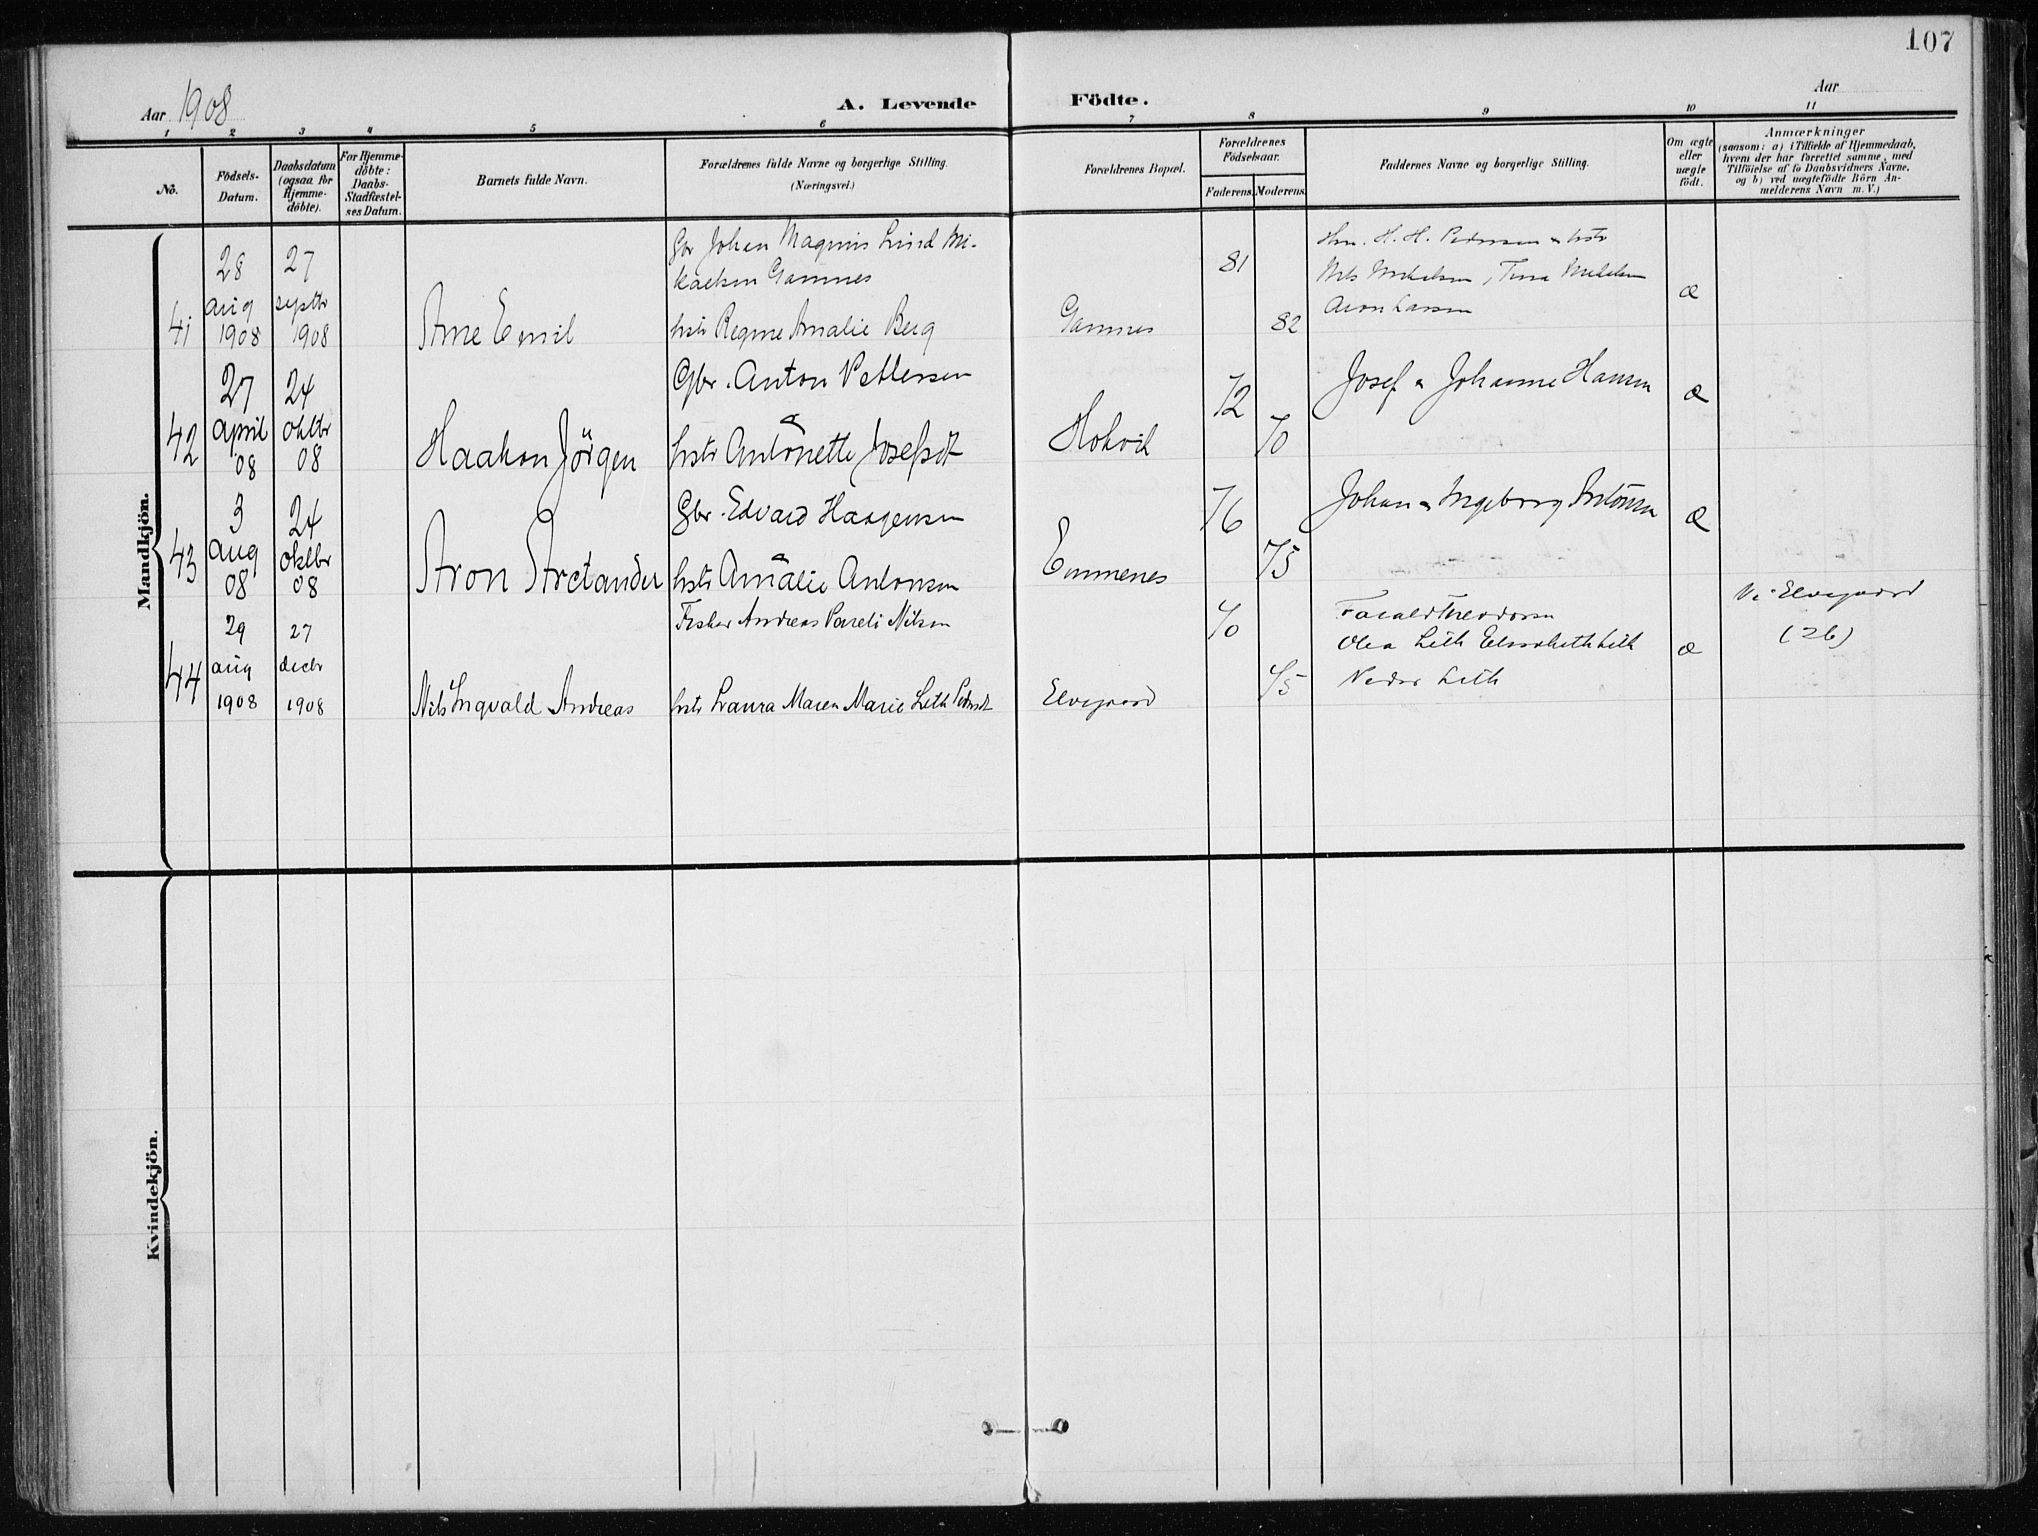 107
Aar 1908
A. Levende Födte.
Aar
1 2 3 4 5 6 7 8 9 10 11
No.
Födsels-Datum.
Daabsdatum (ogsaa for Hjemme-döbte).
For Hjemme-döbte: Daabs-Stadfæstel-ses Datum.
Barnets fulde Navn.
Forældrenes fulde Navne og borgerlige Stilling.
(Næringsvei.)
Forældrenes Bopæl.
Forældrenes Födselsaar.
Faderens. Moderens.
Faddernes Navne og borgerlige Stilling.
Om ægte eller uægte födt.
Anmærkninger
(saasom: a) i Tilfælde af Hjemmedaab,
hvem der har forrettet samme, med
Tilföielse af to Daabsvidners Navne,
og b) ved uægtefödte Börn An-
melderens Navn m. V.)
Mandkjön.
41
28 aug 1908
27 septbr 1908
Arne Emil
Gbr Johan Magnus Lind Mi-
kaelsen Gamnes
hstr Regine Amalie Berg
Gamnes
81
82
H. H. Pedersen & hstr
Nils Mikkelsen, Tina Mikkelsen
Aron Larsen
æ
42
27 april 08
24 oktbr 08
Haakon Jörgen
Gbr. Anton Pettersen
hstr Antonette Josefsdt
Hokvik
72
70
Josef & Johanne Hansen
æ
43
3 aug 08
24 oktbr 08
Aron Arctander
Gbr. Edvard Haagensen
hstr Amalie Antonsen
Emmenes
76
75
Johan & Ingeborg Antonsen
æ
44
29 aug 1908
27 decbr 1908
Nils Ingvald Andreas
Fisker Andreas Pareli Nilsen
hstr Laura Maren Marie Leth Pedersdt
Elvegaard
70
75
Theodorsen
Olea Leth Elisabeth Leth
Peder Leth
æ
Elvegaard
(26)
Kvindekjön.